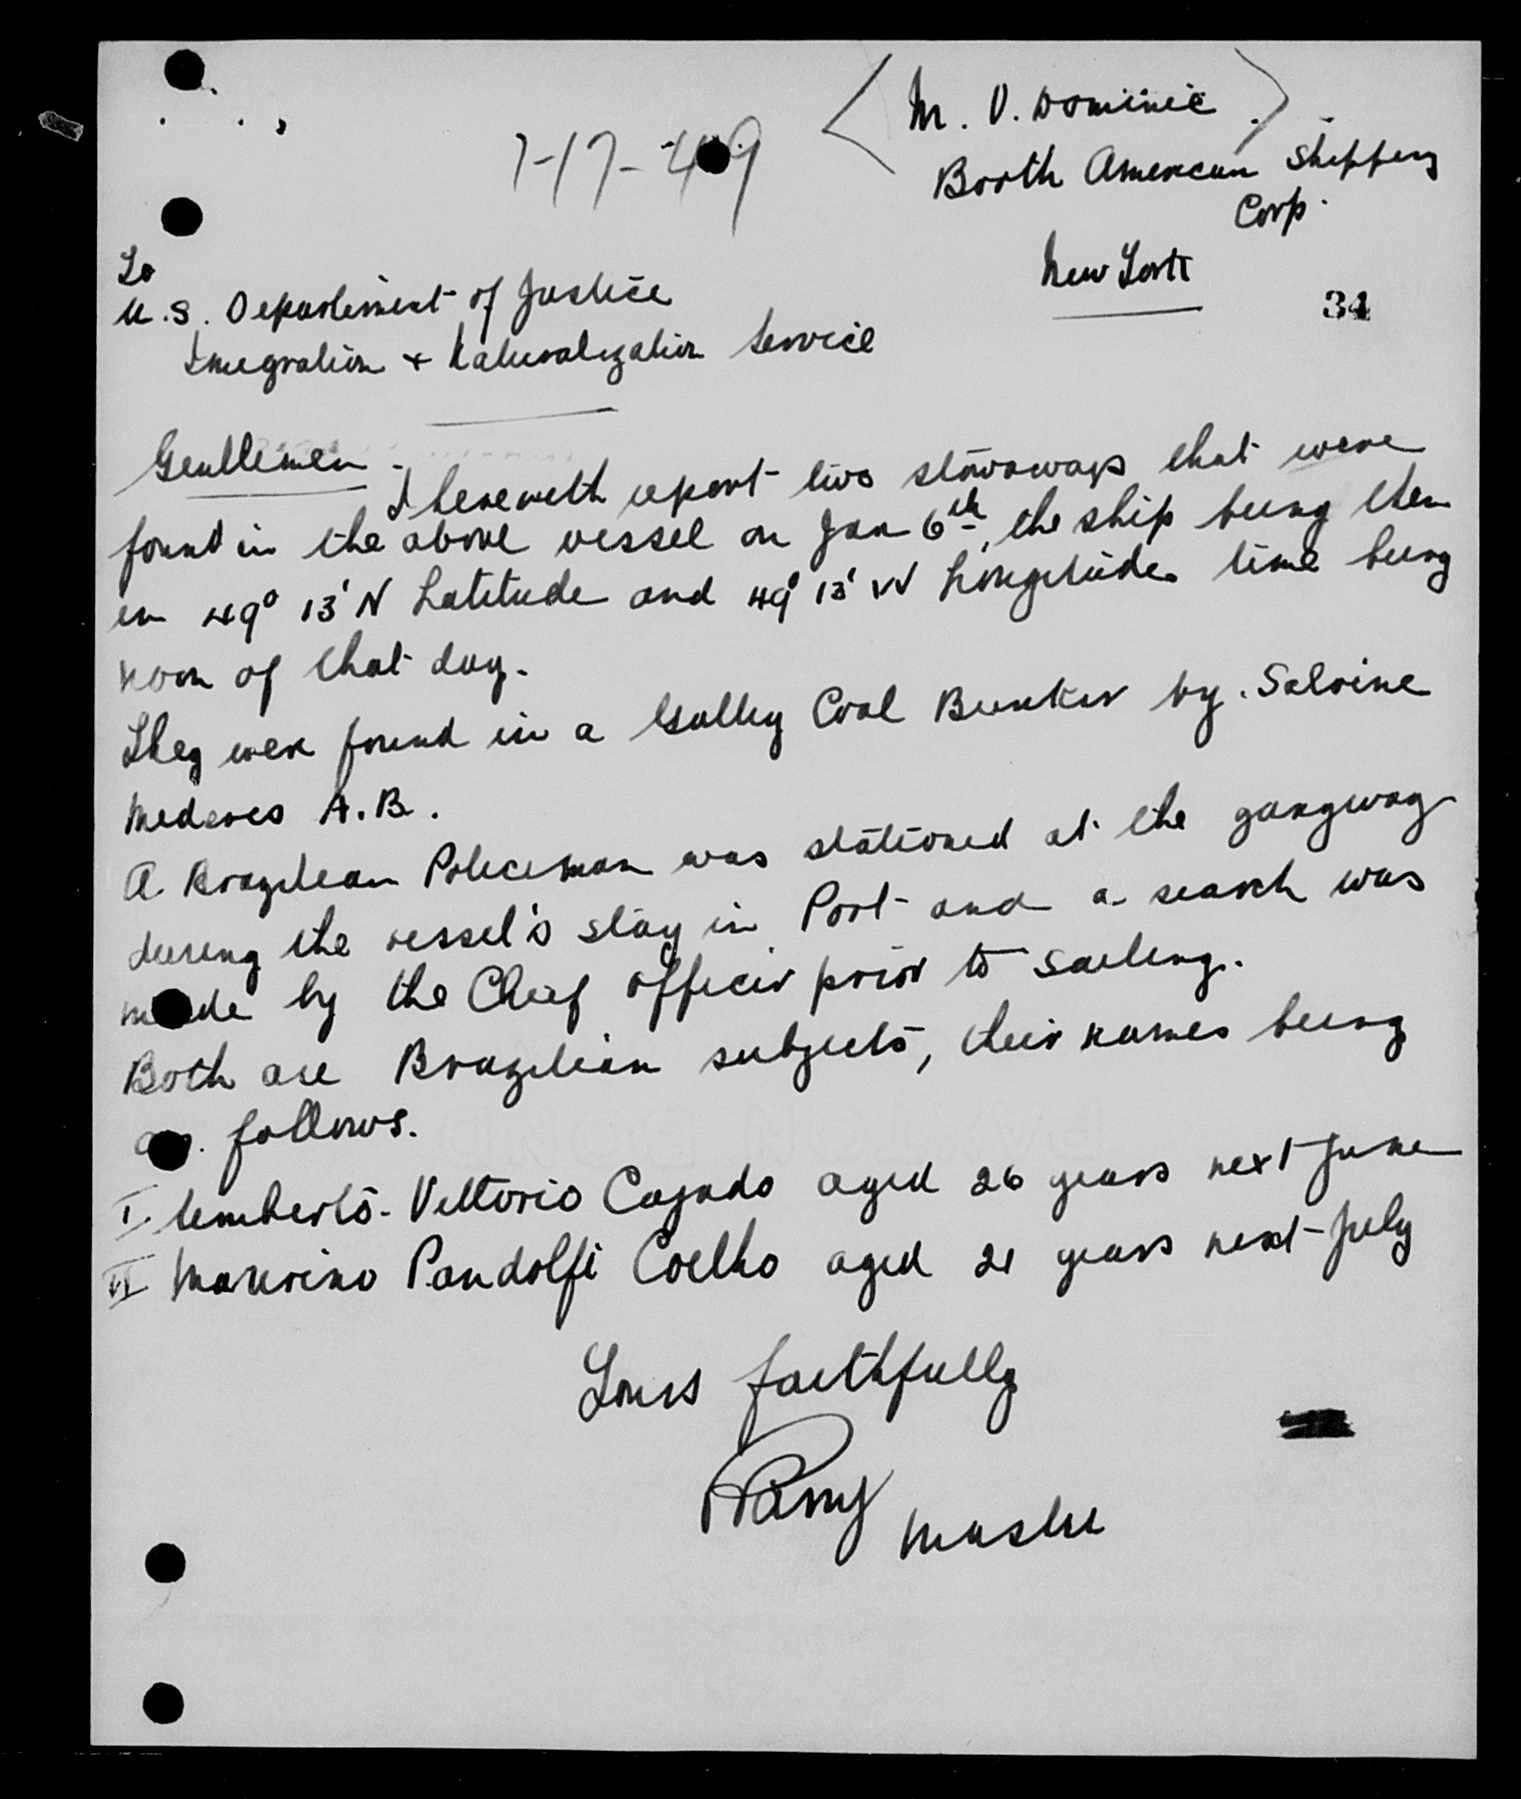 M. V. Dominic
1-17-49
Booth American Shipping
Corp.
New York
34
To
U.S. Department of Justice
Imigration + Naturalization Service
Gentlemen -
I herewith report two stowaways that were
found in the above vessel on Jan 6th, the ship being then
in 49° 13' N Latitude and 49° 13' W Longitude time being
noon of that day.
They were found in a Galley Coal Bunker by Salvine
Mederos A.B.
A Brazilian Policeman was stationed at the gangway
during the vessel's stay in Port and a search was
made by the Chief Officer prior to sailing.
Both are Brazilian subjects, their names being
as follows.
I Umberto - Vittorio Cajado aged 26 years next June
II Pandolfi Coelho aged 21 years next July
Yours faithfully
Master